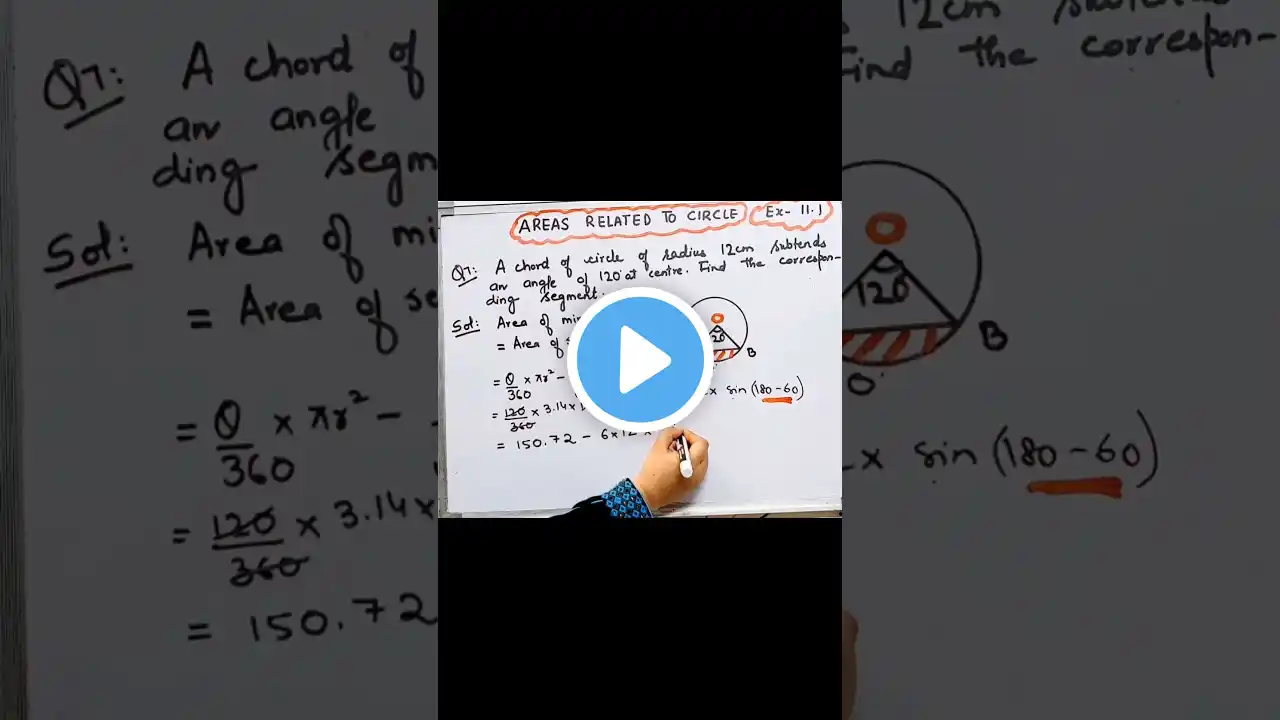 AREAS RELATED TO CIRCLE Ex- 11.1
Q7: A chord of circle of radius 12cm subtends
an angle of 120° at centre. Find the correspon-
ding segment.
Sol: Area of mi
= Area of s
O
120
B
= θ/360 × πr² - x sin (180-60)
= 120/360 × 3.14 ×
= 150.72 - 6×12×